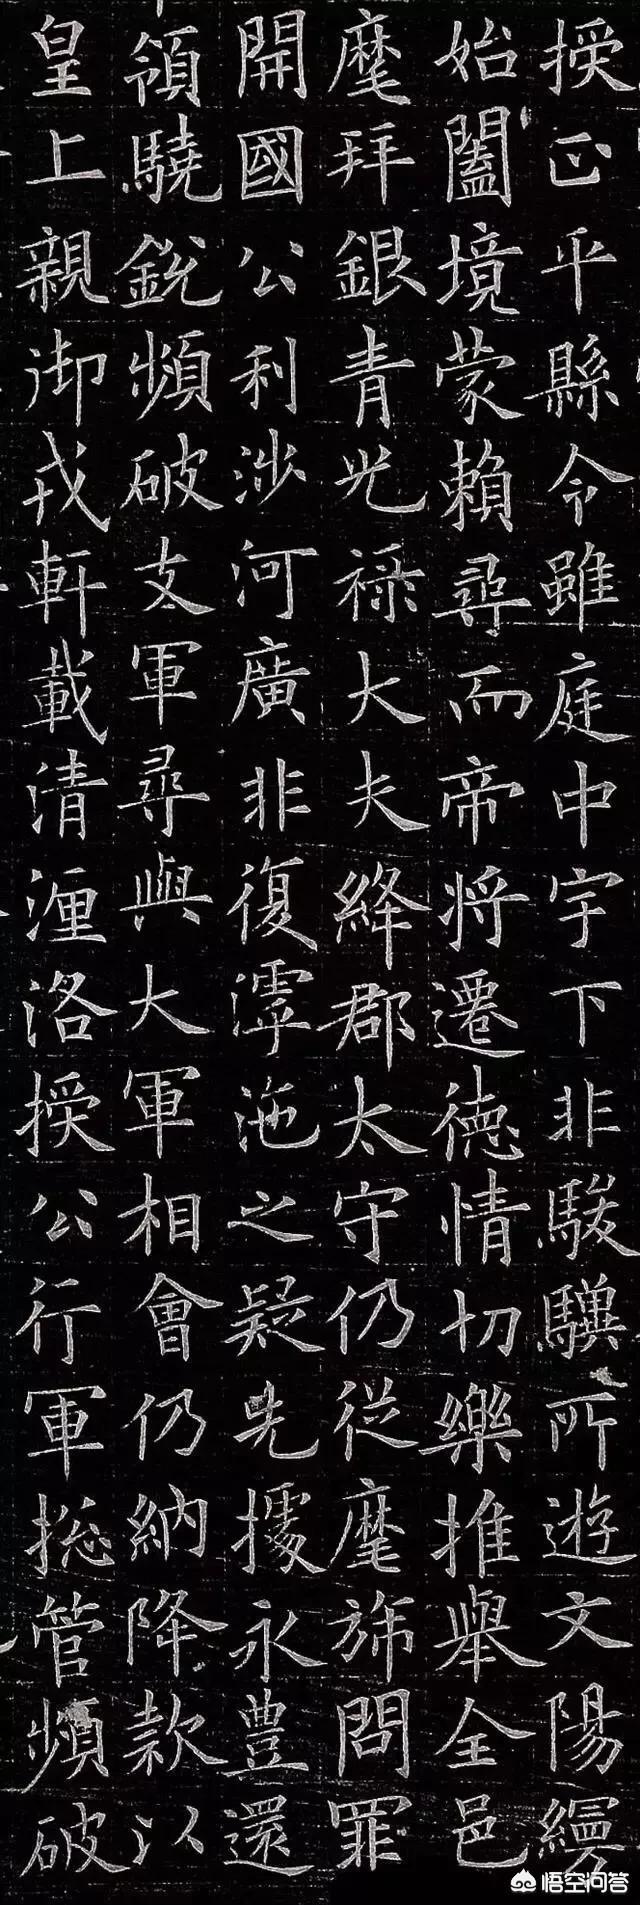 授正平縣令雖庭中宇下非駿驥所遊文陽縵
始闔境蒙賴尋而帝將遷德情切樂推舉全邑
麾拜銀青光禄大夫絳郡太守仍從麾旆問罪
開國公利涉河廣非復滹沲之疑先據永豊還
領驍銳頻破支軍尋與大軍相會仍納降款以
皇上親御戎軒載清瀍洛授公行軍揔管頻破
悟空问答